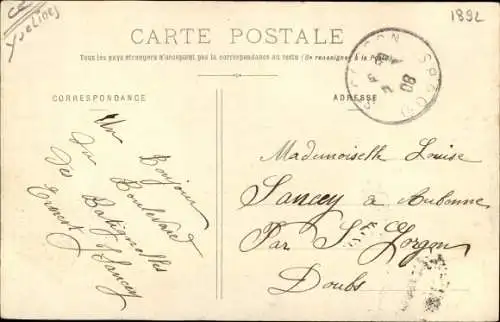 CP
Yvelines
1892
CARTE POSTALE
Tous les pays étrangers n'acceptent pas la correspondance au recto (Se renseigner à la Poste)
CORRESPONDANCE
ADRESSE
08
Un Bonjour
du Boulevard
de Batignolles
Ernest Sancey
Mademoiselle Louise
Sancey à Aubonne
Par St Gorgon
Doubs